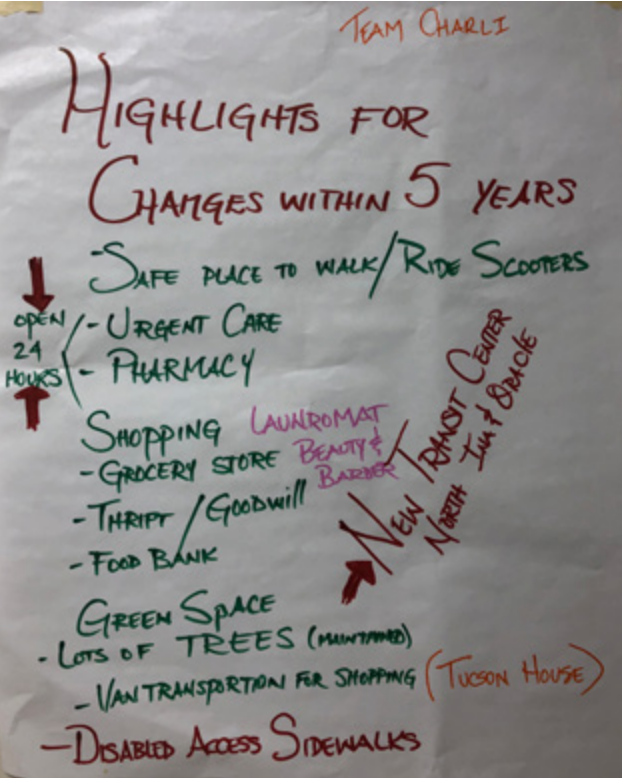 TEAM CHARLI
HIGHLIGHTS FOR
CHANGES WITHIN 5 YEARS
-SAFE PLACE TO WALK/RIDE SCOOTERS
OPEN
24
HOURS
- URGENT CARE
- PHARMACY
SHOPPING
- GROCERY STORE
- THRIPT/GOODWill
- FOOD BANK
LAUNROMAT
BEAUTY &
BARBER
NEW TRANSIT CENTER
NORTH INN & ORACLE
GREEN SPACE
- LOTS OF TREES (MAINTAINED)
- VAN TRANSPORTION FOR SHOPPING (TUCSON HOUSE)
- DISABLED ACCESS SIDEWALKS